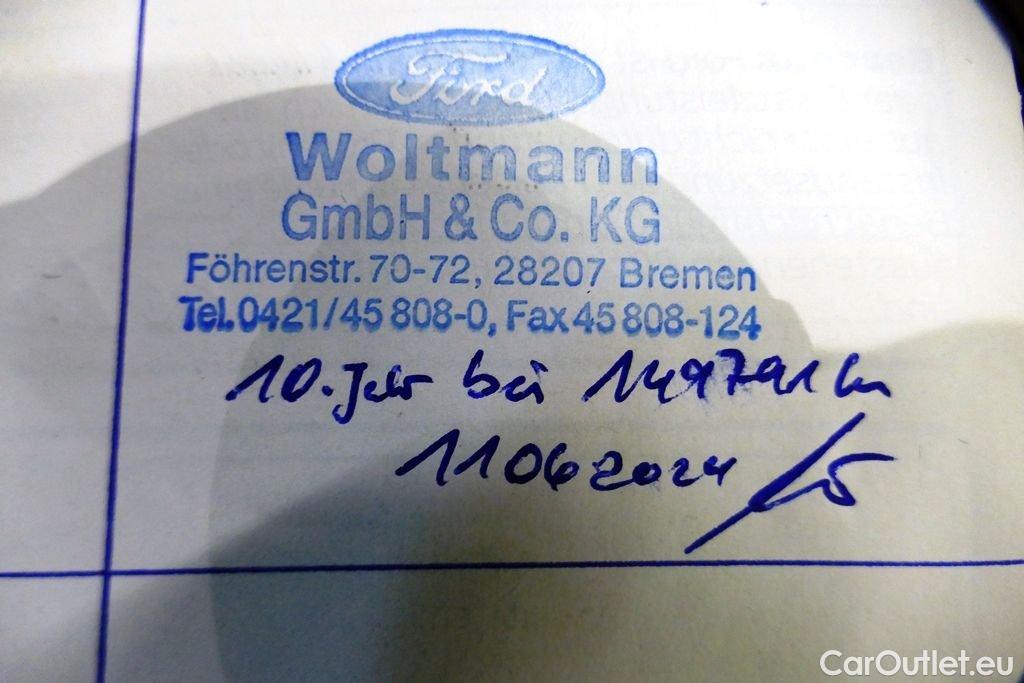 Ford
Woltmann
GmbH & Co. KG
Föhrenstr. 70-72, 28207 Bremen
Tel. 0421/45 808-0, Fax 45 808-124
10. Jahr bei 149791 km
11062024
CarOutlet.eu